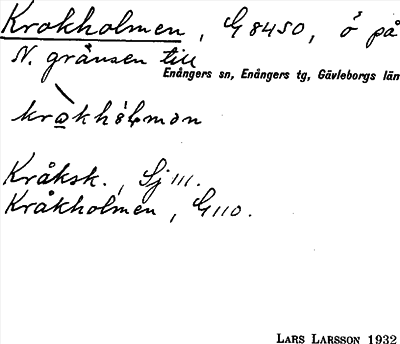 Krokholmen, G 8450, ö på
N. gränsen till
Enångers sn, Enångers tg, Gävleborgs län
Kråksk., Sj 111.
Kråkholmen, G 110.
LARS LARSSON 1932